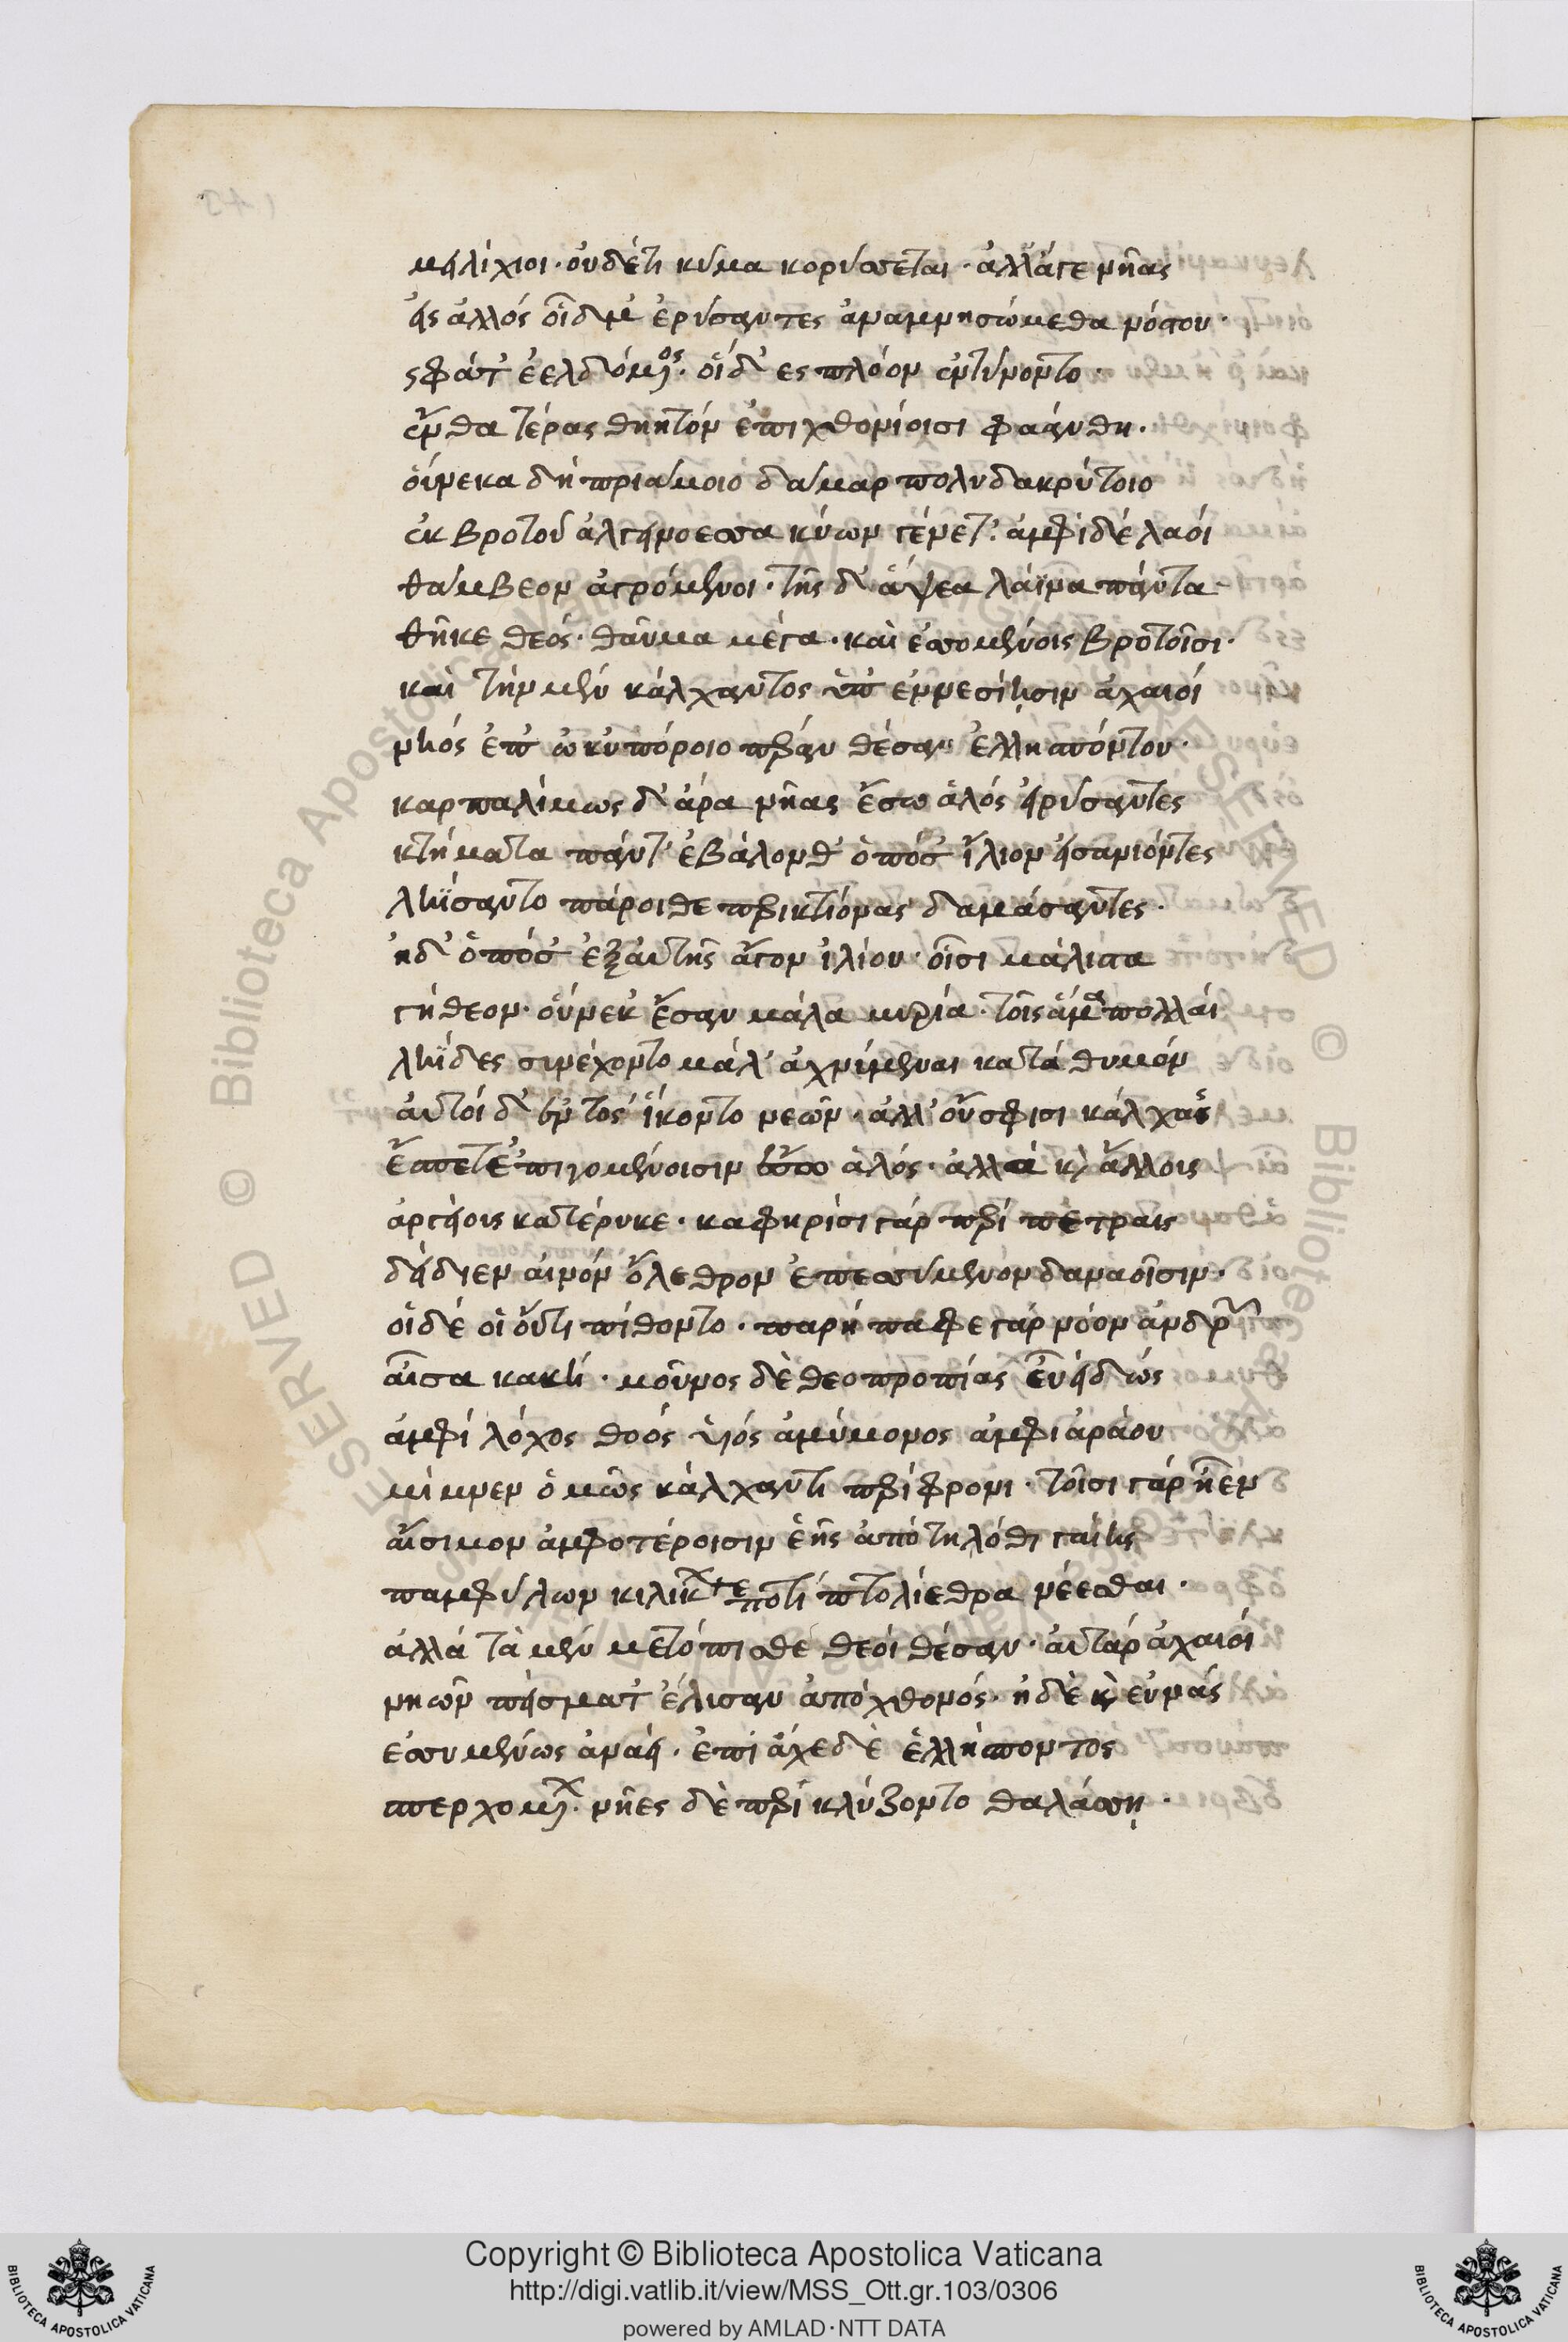 μειλίχιοι· οὐδέτι κύμα κορύσσεται· ἀλλ' ἄγε νῆας
εἰς ἁλὸς οἶδμ' ἐρύσαντες ἀναμνησώμεθα νόστου·
ς φάτ' ἐελδόμενος· οἱ δ' ες πλόον ἐντύνοντο·
ἔνθα τέρας θηητὸν ἐπιχθονίοισι φαάνθη·
οὕνεκα δὴ πριάμοιο δάμαρ πολυδακρύτοιο
ἐκ βροτοῦ ἀλγεινοεσσα κύων γένετ'· ἀμφὶ δὲ λαοὶ
θάμβεον ἀγρόμενοι· τῆς δ' ἅψεα λάϊνα πάντα
θῆκε θεός· θαῦμα μέγα· καὶ ἐσσομένοις βροτοῖσι·
καὶ τὴν μὲν κάλχαντος ὑπ' ἐννεσίῃσιν ἀχαιοὶ
νηὸς ἐπ' ὠκυπόροιο πέραν θέσαν ἑλλησπόντου·
καρπαλίμως δ' ἄρα νῆας ἔσω ἁλὸς εἰρύσαντες
κτήματα πάντ' ἐβάλονθ' ὁπόσ' ἴλιον εἰσανιόντες
ληΐσαντο πάροιθε περικτίονας δαμάσαντες·
ἠδ' ὁπόσ' ἐξ αὐτῆς ἄγον ἰλίου· οἷσι μάλιστα
γήθεον· οὕνεκ' ἔσαν μάλα μυρία· τοῖς ἅμα πολλαὶ
ληΐδες συνέχοντο μάλ' ἀχνύμεναι κατὰ θυμόν
αὐτοὶ δ' ἐντὸς ἵκοντο νεῶν· ἀλλ' οὔ σφισι κάλχας
ἕσπετ' ἐπιγομένοισιν ἔσσω ἁλός· ἀλλὰ κ ἄλλοις
ἀργείοις κατέρυκε· καφηρίσι γὰρ περὶ πέτραις
δείδιεν αἰνὸν ὄλεθρον ἐπεσσύμενον δαναοῖσιν·
οἱ δέ οἱ οὔτι πίθοντο· παρήπαφε γὰρ νόον ἀνδρῶν
αἶσα κακή· μοῦνος δὲ θεοπροπίας εὖ εἰδὼς
ἀμφίλοχος θοὸς υἱὸς ἀμύμονος ἀμφιαράου
μίμνεν ὁμῶς κάλχαντι περίφρονι· τοῖσι γὰρ ἦεν
αἴσιμον ἀμφοτέροισιν ἑῆς ἀπὸ τηλόθι γαίης
παμφύλων κιλίκων τε ποτὶ πτολίεθρα νέεσθαι·
ἀλλὰ τὰ μὲν μετόπισθε θεοὶ θέσαν· αὐτὰρ ἀχαιοὶ
νηῶν πείσματ' ἔλισαν ἀπὸ χθονός· ἠδὲ κ εὐνὰς
ἐσσυμένως ἀναει· ἐπίαχε δὲ ἑλλήσποντος
σπερχομένων· νῆες δὲ περικλύζοντο θαλάσσῃ·
Copyright © Biblioteca Apostolica Vaticana
http://digi.vatlib.it/view/MSS_Ott.gr.103/0306
powered by AMLAD·NTT DATA